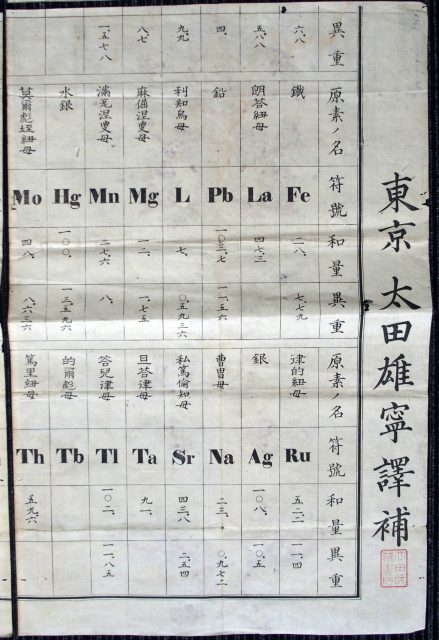 東京 太田雄寧譯補
異重 原素ノ名 符號 和量 異重 原素ノ名 符號 和量 異重
六.八 鐵 Fe 二八. 七.七九 律的紐母 Ru 五二.二 一一.四
五.八八 朗荅紐母 La 四七.二 銀 Ag 一〇八. 一〇.五
四. 鉛 Pb 一〇三.七 一一.五六 曹曹母 Na 二三. 〇.九七二
九.九 利知烏母 L 七. 〇.五九三六 私篤倫知母 Sr 四三.八 二.五四
八.七 麻倔涅叟母 Mg 一二. 一.七五 旦荅律母 Ta 九一.
一.五七八 滿瓦涅叟母 Mn 二七.六 八. 荅兒律母 Tl 一〇二. 一一.八五
水銀 Hg 一〇〇. 一三.五九六 的爾彪母 Tb
莫爾彪垤紐母 Mo 四八. 八.六三六 篤里紐母 Th 五九.六